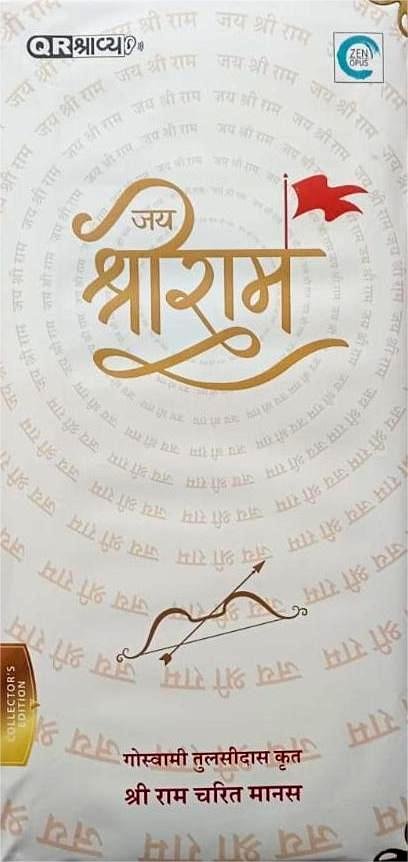 QR श्राव्य
ZEN
OPUS
जय
श्रीराम
COLLECTOR'S
EDITION
गोस्वामी तुलसीदास कृत
श्री राम चरित मानस
जय श्री राम जय श्री राम जय श्री राम